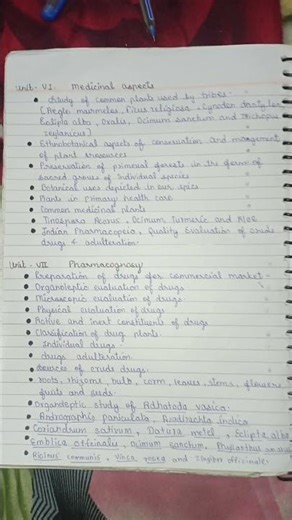 Unit - VI Medicinal aspects
• Study of common plants used by tribes.
[Aegle marmelos, Ficus religiosa, Cynodon dactylon
Eclipta alba, Oxalis, Ocimum sanctum and Trichopus
zeylanicus]
• Ethnobotanical aspects of conservation and management
of plant resources
• Preservation of primeval forests in the form of
sacred groves of Individual species
• Botanical uses depicted in our epics
• Plants in primary health care
• Common medicinal plants
• Tinospora, Ocimum, Turmeric and Aloe
• Indian Pharmacopeia, Quality Evaluation of crude
drugs & adulteration.
Unit - VII Pharmacognosy
• Preparation of drugs for commercial market
• Organoleptic evaluation of drugs
• Microscopic evaluation of drugs
• Physical evaluation of drugs
• Active and inert constituents of drugs
• Classification of drug plants.
• Individual drugs
• drugs adulteration
• Sources of crude drugs
• roots, rhizoms, bulb, corm, leaves, stems, flowers
fruits and seeds.
• Organoleptic study of Adhatoda vasica.
• Andrographis paniculata, Azadirachta indica
• Coriandrum sativum, Datura metel, Eclipta alba,
Emblica officinalis, Ocimum sanctum, Phyllanthus
• Ricinus communis, Vinca rosea and Zingiber officinale.